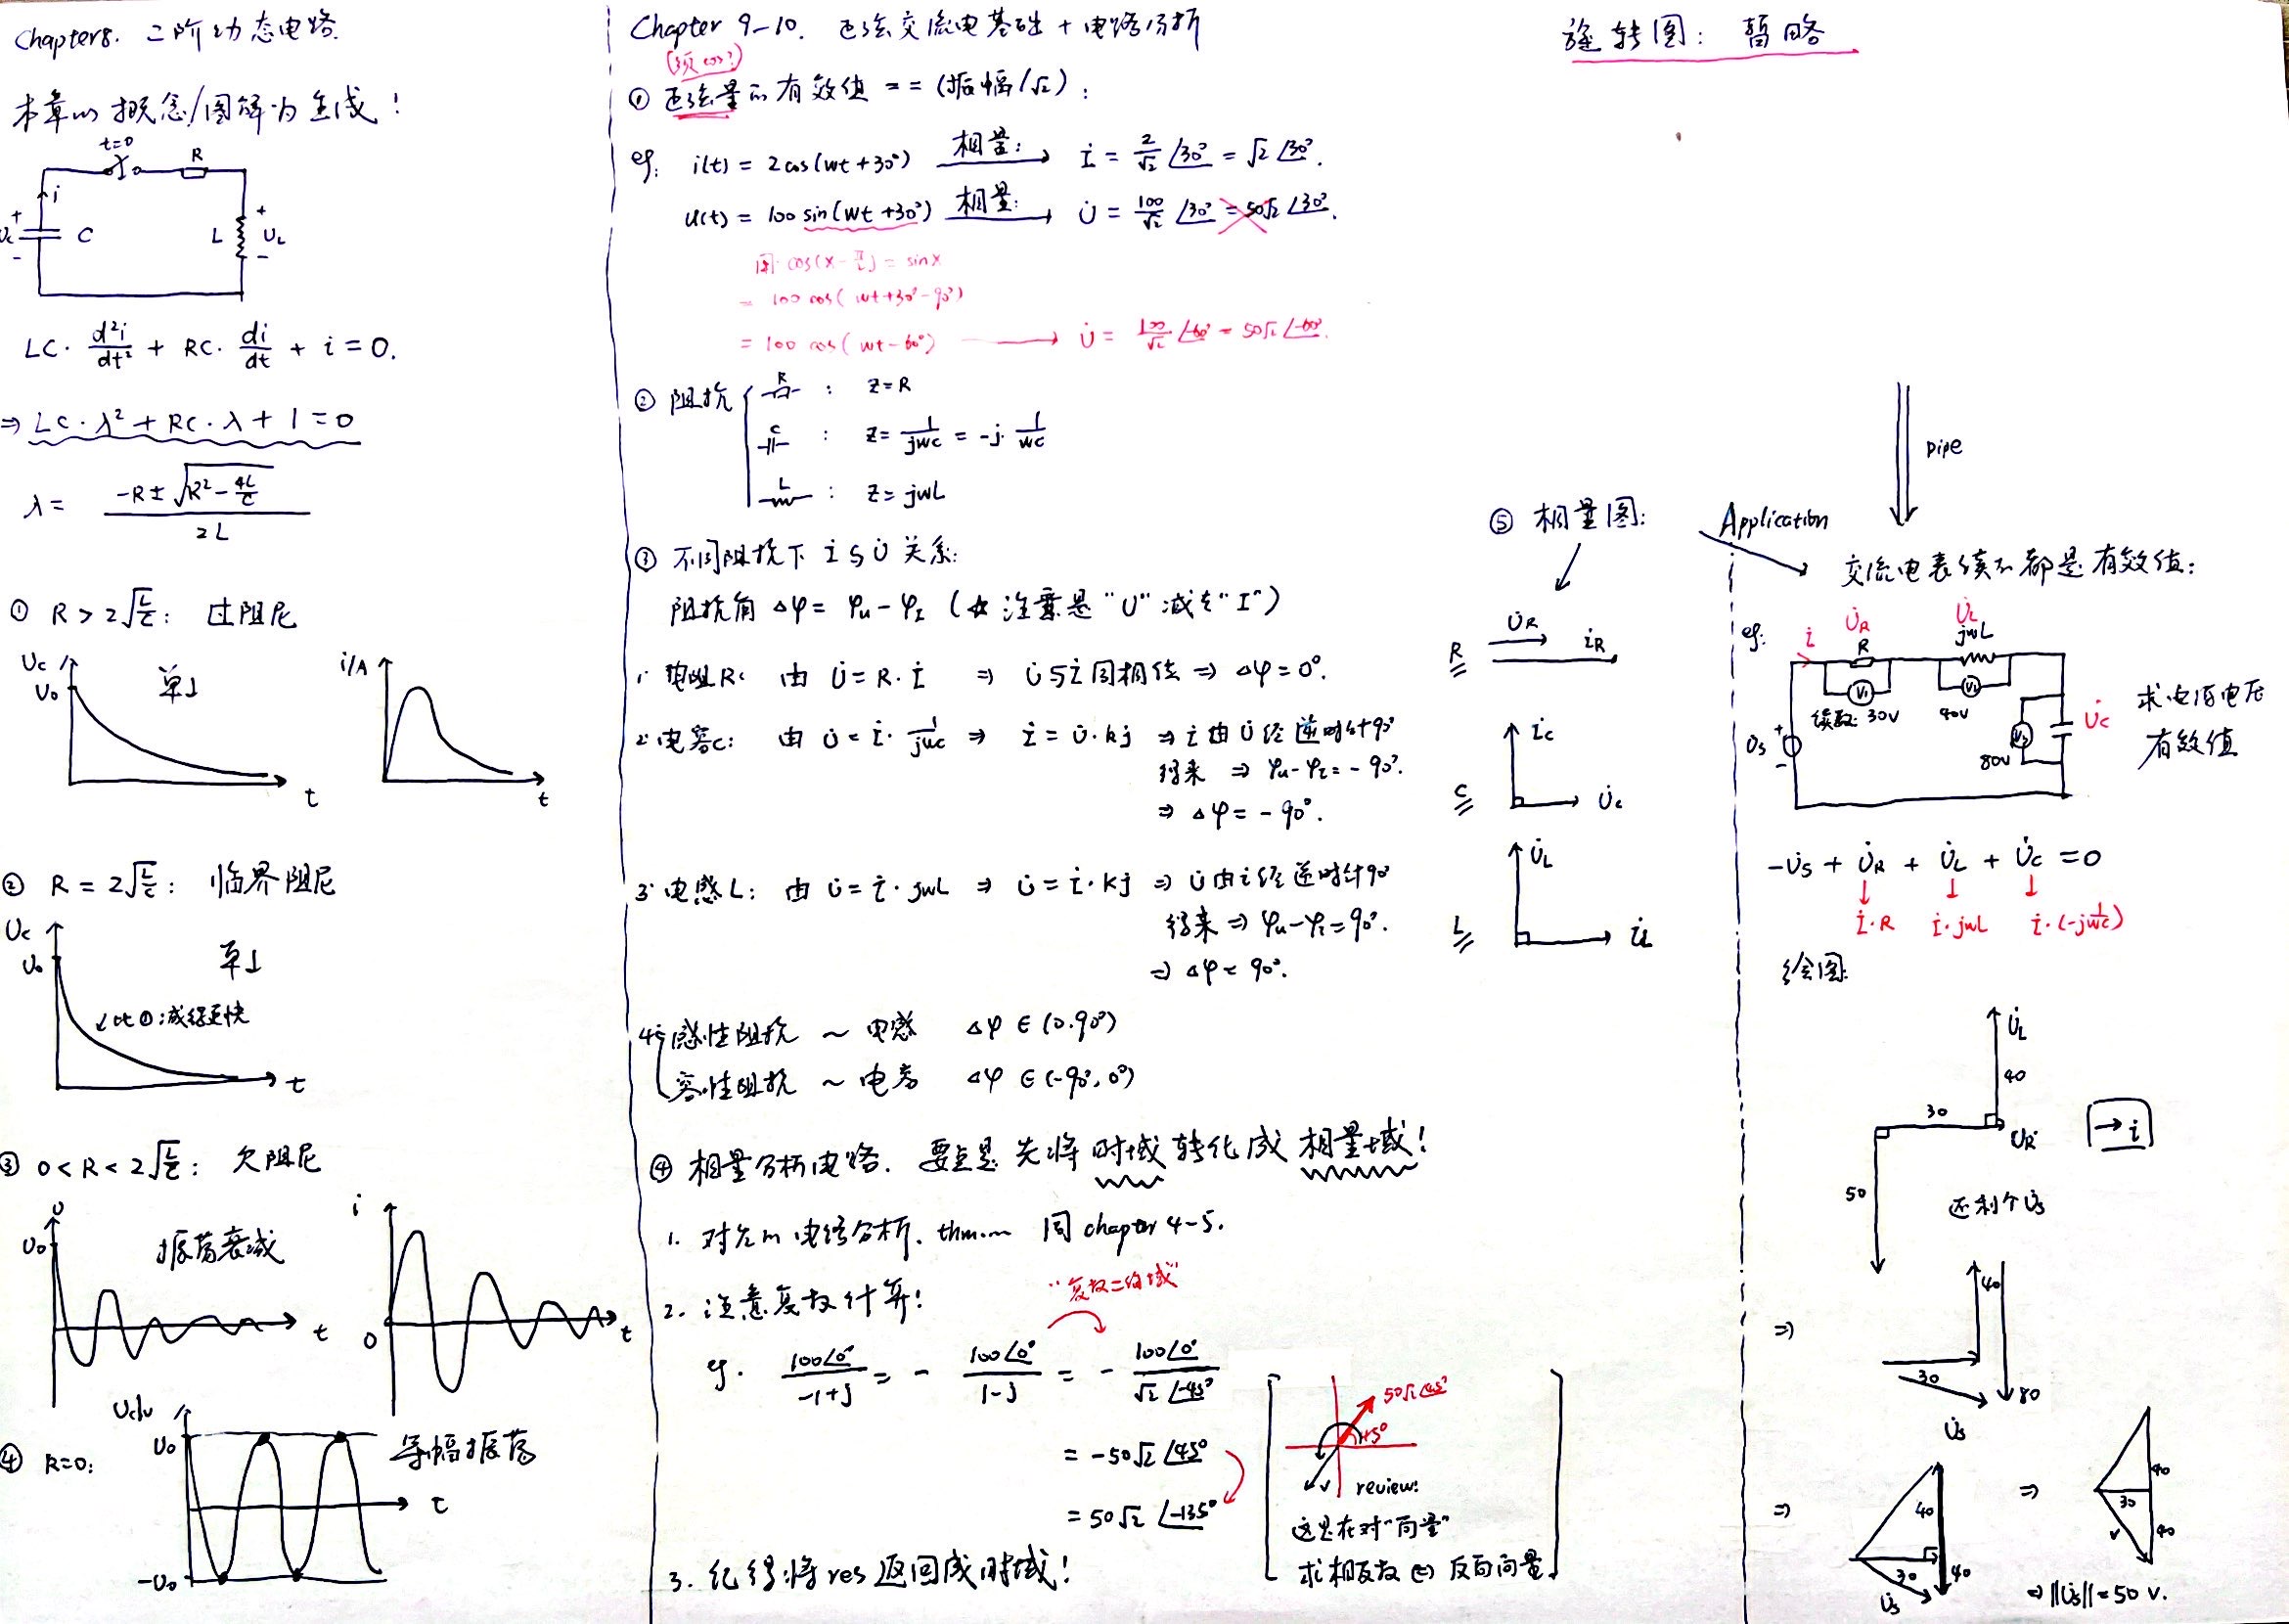 Chapter8. 二阶动态电路.
本章以概念/图解为主线!
t=0
R
i
+
Uc
-
C
L
+
UL
-
LC· d²i/dt² + RC· di/dt + i = 0.
⇒ LC·λ² + RC·λ + 1 = 0
λ = (-R ± √(R² - 4L/C)) / 2L
① R > 2√(L/C): 过阻尼
Uc
U₀
单↓
t
i/A
t
② R = 2√(L/C): 临界阻尼
Uc
U₀
单↓
比①:减得更快
t
③ 0 < R < 2√(L/C): 欠阻尼
U
U₀
振荡衰减
t
i
0
t
④ R=0:
Uc/v
U₀
-U₀
等幅振荡
t
Chapter 9-10. 正弦交流电基础 + 电路分析
(须cos?)
① 正弦量的有效值 == (振幅/√2):
eg. i(t) = 2cos(wt+30°) 相量: → İ = 2/√2 ∠30° = √2 ∠30°.
u(t) = 100 sin(wt+30°) 相量: → U̇ = 100/√2 ∠30° = 50√2 ∠30°.
因 cos(x - π/2) = sinx
= 100 cos(wt+30°-90°)
= 100 cos(wt-60°) → U̇ = 100/√2 ∠-60° = 50√2 ∠-60°.
② 阻抗
R : Z=R
C : Z= 1/jwc = -j· 1/wc
L : Z= jwL
③ 不同阻抗下 İ与U̇ 关系:
阻抗角 Δφ = φu - φI (☆ 注意是"U"减去"I")
1· 电阻R: 由 U̇ = R·İ ⇒ U̇与İ同相位 ⇒ Δφ=0°.
2· 电容C: 由 U̇ = İ· 1/jwc ⇒ İ = U̇·kj ⇒ İ由U̇经逆时针90°
得来 ⇒ φu-φI = -90°.
⇒ Δφ = -90°.
3· 电感L: 由 U̇ = İ·jwL ⇒ U̇ = İ·kj ⇒ U̇由İ经逆时针90°
得来 ⇒ φu-φI = 90°.
⇒ Δφ = 90°.
4· 感性阻抗 ~ 电感 Δφ ∈ (0.90°)
容性阻抗 ~ 电容 Δφ ∈ (-90°, 0°)
④ 相量分析电路. 要点是 先将 时域 转化成 相量域!
1. 对应的电路分析. thm. 同 chapter 4-5.
2. 注意复数计算!
"复数二值域"
eg. 100∠0°/(-1+j) = - 100∠0°/(1-j) = - 100∠0°/(√2 ∠-45°)
= -50√2 ∠45°
= 50√2 ∠-135°
50√2 ∠45°
45°
review:
这是在对"向量"
求相反数 ⇔ 反向向量
3. 记得将res返回成时域!
旋转图: 暂略
pipe
⑤ 相量图:
R
U̇R
İR
C
İC
U̇C
L
U̇L
İL
Application
交流电表读示都是有效值:
eg:
İ
U̇R
R
U̇L
jwL
V1
读数: 30V
V2
40V
V3
80V
U̇C
U̇s
+
-
求电源电压
有效值
-U̇s + U̇R + U̇L + U̇C = 0
İ·R İ·jwL İ·(-j 1/wc)
绘图:
U̇L
40
30
U̇R
50
→ İ
还剩个U̇s
⇒
40
30
80
U̇s
⇒
40
30
40
U̇s
⇒
40
30
40
⇒ ||U̇s|| = 50 V.